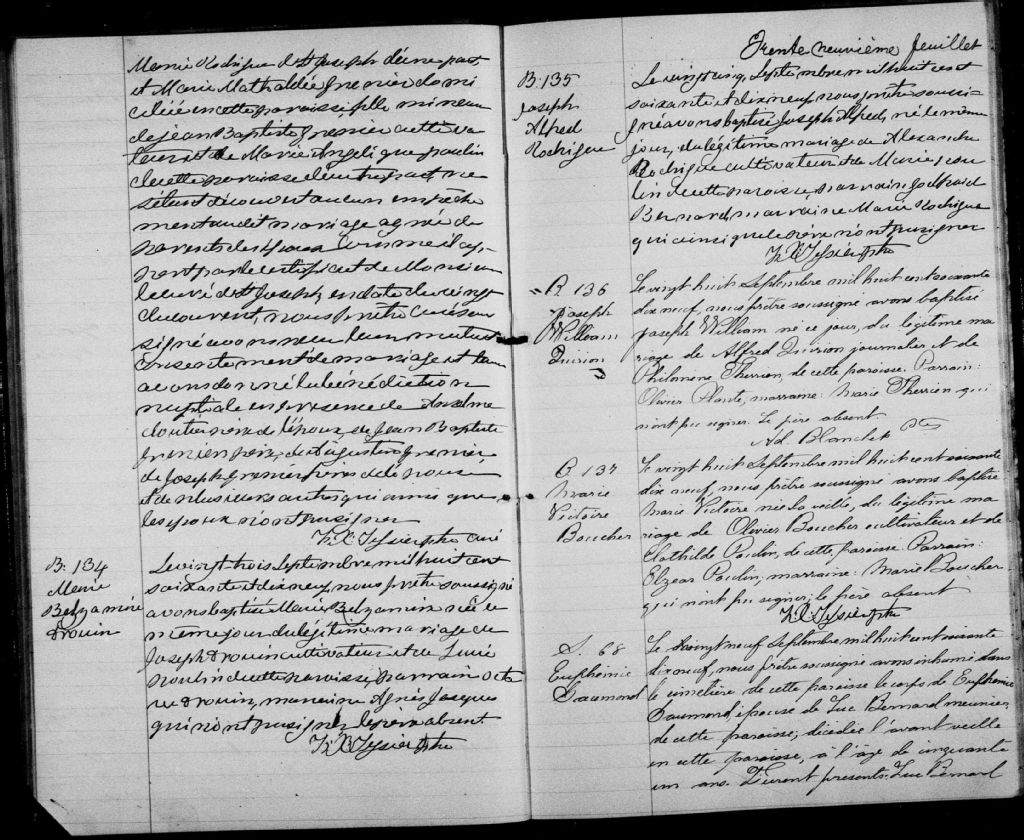 Marie Rodrigue de St Joseph décine part
et Marie Mathaldée Grenier domi
ciliée en cette paroisse, fille mineure
de Jean Baptiste Grenier cultiva
teur et de Marie Angélique Poulin
de cette paroisse d'autre part, ne
s'étant découvert aucun empêche
ment au dit mariage agréé de
parents des époux comme il ap
pert par le certificat de Monsieur
le curé de St Joseph, en date du vingt
du courent, nous prêtre curé sous
signé avons reçu leur mutuel
consentement de mariage et leur
avons donné la bénédiction
nuptiale en présence de Anselme
Cloutier père de l'époux, de Jean Baptiste
Grenier père, de Augustin Grenier,
de Joseph Grenier frères de l'épouse
et de plusieurs autres qui ainsi que
les époux n'ont pu signer
Tessier ptre curé
B. 134
Marie
Belzamire
Drouin
Le vingt trois Septembre mil huit cent
soixante et dix neuf, nous prêtre soussigné
avons baptisé Marie Belzamire née ce
même jour du légitime mariage de
Joseph Drouin cultivateur et de Lucie
Poulin de cette paroisse, parrain Octa
ve Drouin, marraine Agnès Jacques
qui n'ont pu signer le père absent
Tessier Ptre
Trente neuvième feuillet
B. 135
Joseph
Alfred
Rodrigue
Le vingt cinq, Septembre mil huit cent
soixante et dix neuf, nous prêtre soussi
gné avons baptisé Joseph Alfred, né le même
jour, du légitime mariage de Alexandre
Rodrigue cultivateur et de Marie Pou
lin de cette paroisse, parrain Godfroid
Bernard, marraine Marie Rodrigue
qui ainsi que le père n'ont pu signer
Tessier Ptre
B. 136
Joseph
William
Quirion
Le vingt huit Septembre mil huit cent soixante
dix neuf, nous prêtre soussigné avons baptisé
Joseph William né ce jour, du légitime ma
riage de Alfred Quirion journalier et de
Philomène Therrien, de cette paroisse. Parrain:
Olivier Plante, marraine: Marie Therrien qui
n'ont pu signer. Le père absent.
Ad. Blanchet Ptre
B. 137
Marie
Victoire
Boucher
Le vingt huit Septembre mil huit cent soixante
dix neuf, nous prêtre soussigné avons baptisé
Marie Victoire née la veille, du légitime ma
riage de Olivier Boucher cultivateur et de
Clothilde Poulin, de cette paroisse. Parrain:
Elzear Poulin; marraine: Marie Boucher
qui n'ont pu signer; le père absent
Tessier Ptre
S. 68
Euphémie
Daumond
Le vingt neuf Septembre mil huit cent soixante
dix neuf, nous prêtre soussigné avons inhumé dans
le cimetière de cette paroisse le corps de Euphémie
Daumond, épouse de Luc Bernard meunier,
de cette paroisse; décédée l'avant veille
en cette paroisse, à l'âge de cinquante
un ans. Furent présents: Luc Bernard